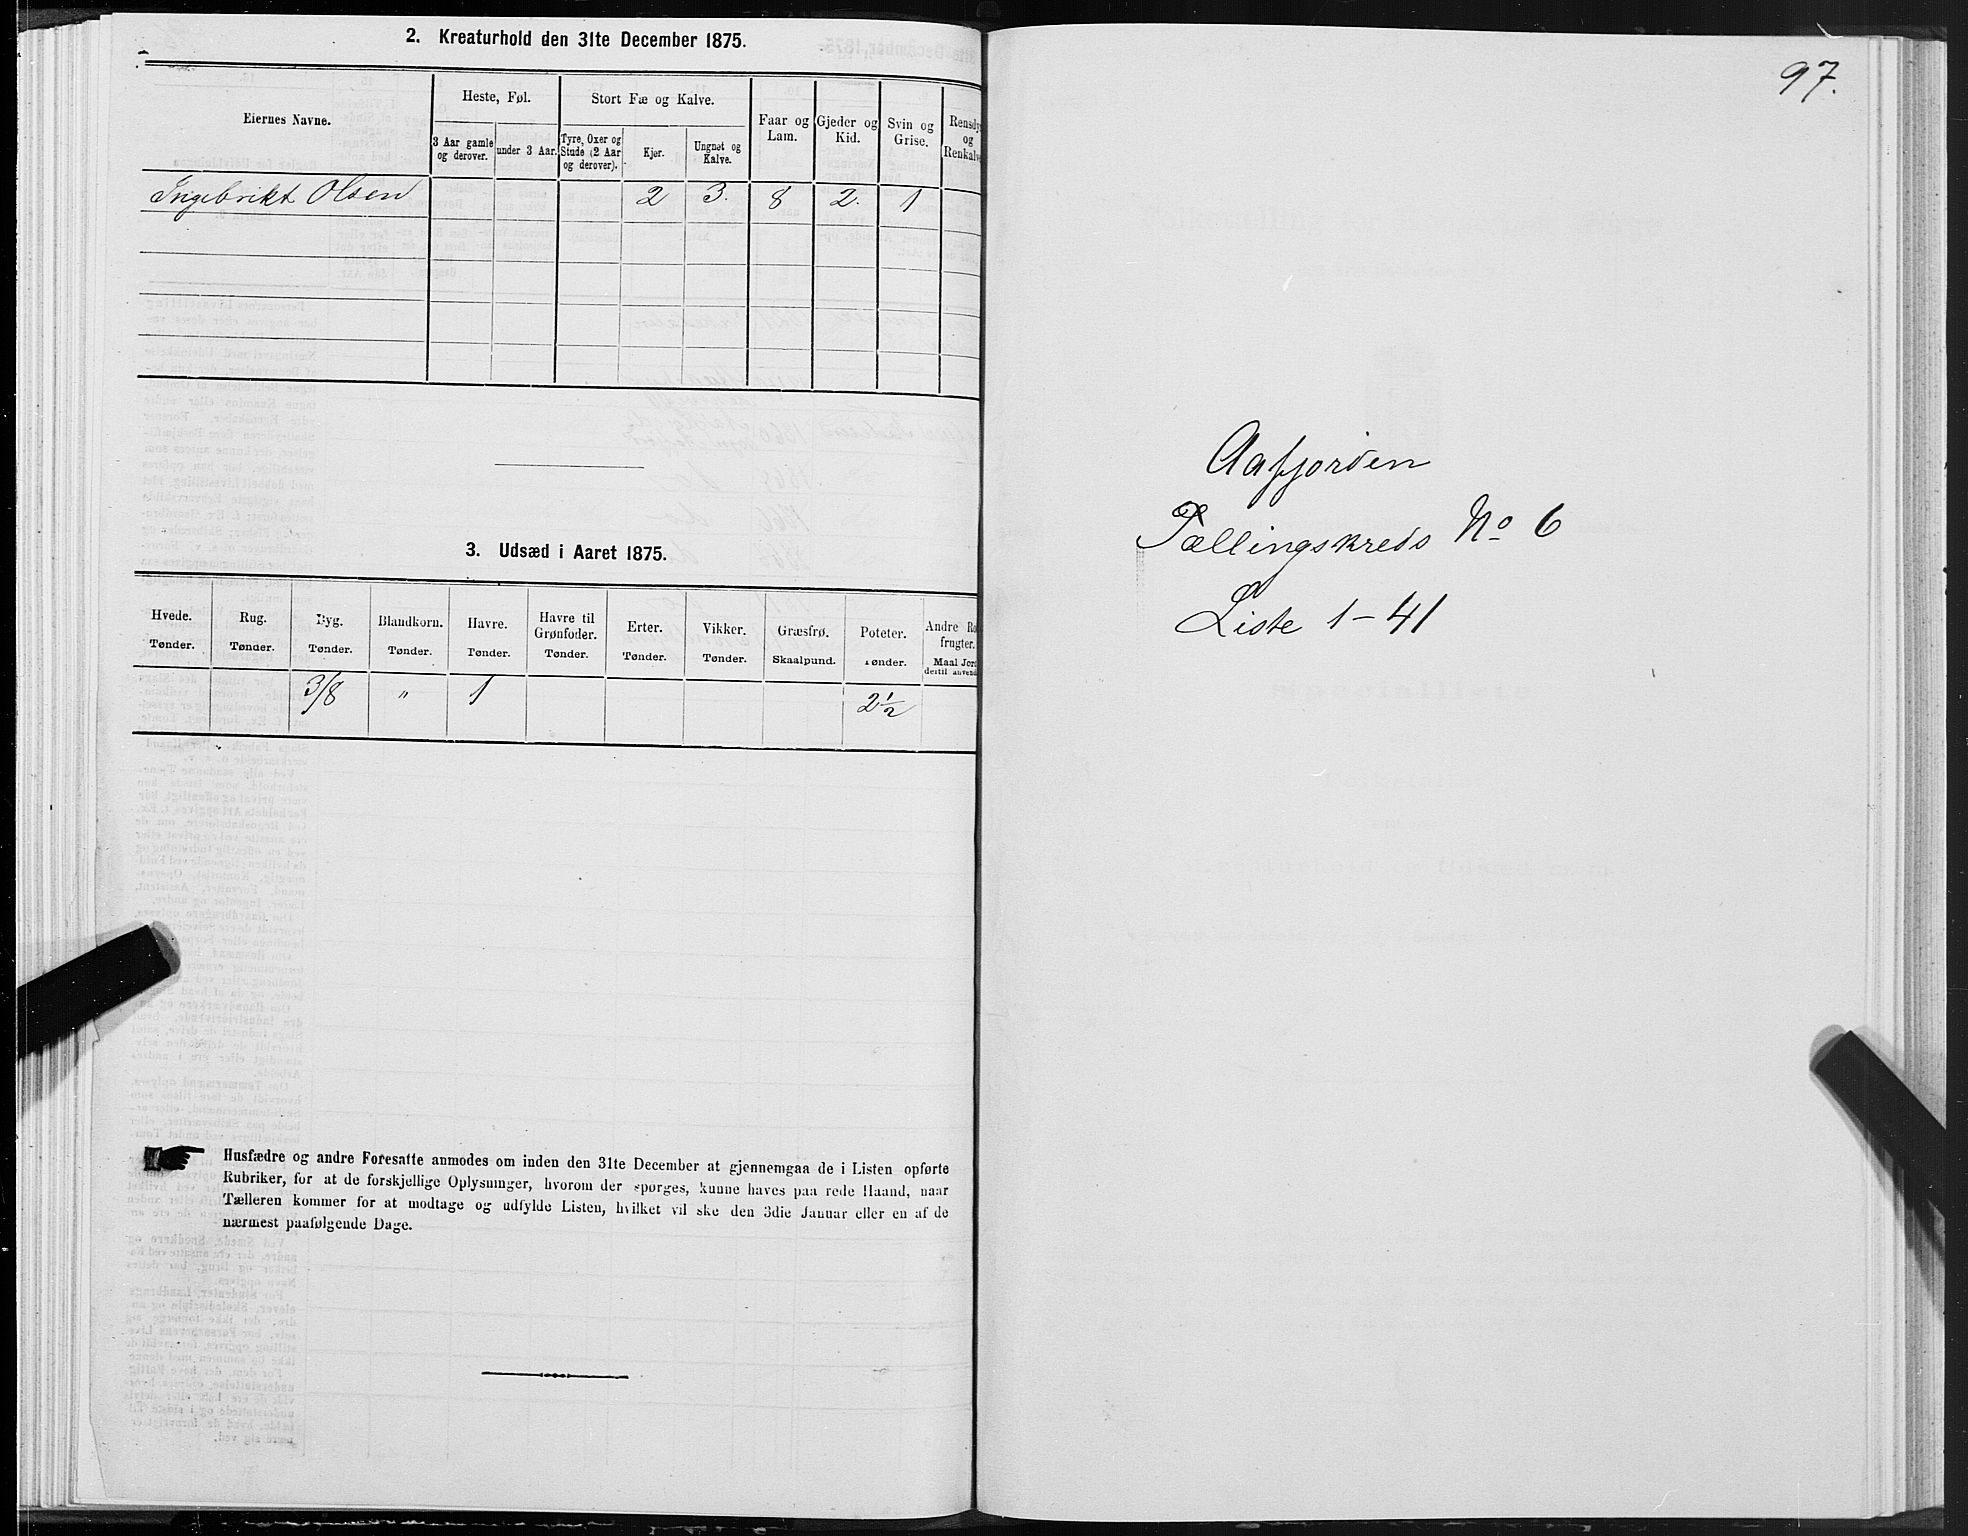 2. Kreaturhold den 31te December 1875.
Eiernes Navne.
Heste, Føl.
Stort Fæ og Kalve.
Faar og Lam.
Gjeder og Kid.
Svin og Grise.
Rensdy
og
Renkalv
3 Aar gamle og derover.
under 3 Aar.
Tyre, Oxer og Stude (2 Aar og derover).
Kjør.
Ungnøt og Kalve.
Ingebrikt Olsen 2 3. 8 2. 1
3. Udsæd i Aaret 1875.
Hvede. Rug. Byg. Blandkorn. Havre. Havre til Grønfoder. Erter. Vikker. Græsfrø. Poteter. Andre Ro
frugter.
Tønder. Tønder. Tønder. Tønder. Tønder. Tønder. Tønder. Tønder. Skaalpund. Tønder. Maal Jord
dertil anvend
3/8 " 1 2½
Husfædre og andre Foresatte anmodes om inden den 31te December at gjennemgaa de i Listen opførte
Rubriker, for at de forskjellige Oplysninger, hvorom der spørges, kunne haves paa rede Haand, naar
Tælleren kommer for at modtage og udfylde Listen, hvilket vil ske den 3die Januar eller en af de
nærmest paafølgende Dage.
97.
Aafjorden
Tællingskreds No 6
Liste 1-41